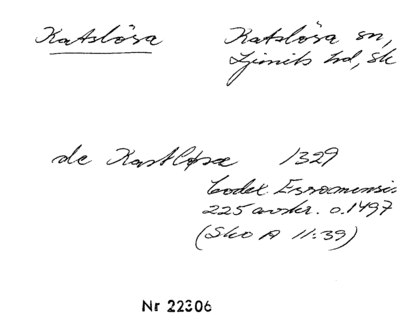 Katslösa
Katslösa sn,
Ljunits hd, Sk
de Kastløsæ 1329
Codex Esromensis
225 avskr. o. 1497
(Sko A 11:39)
Nr 22306